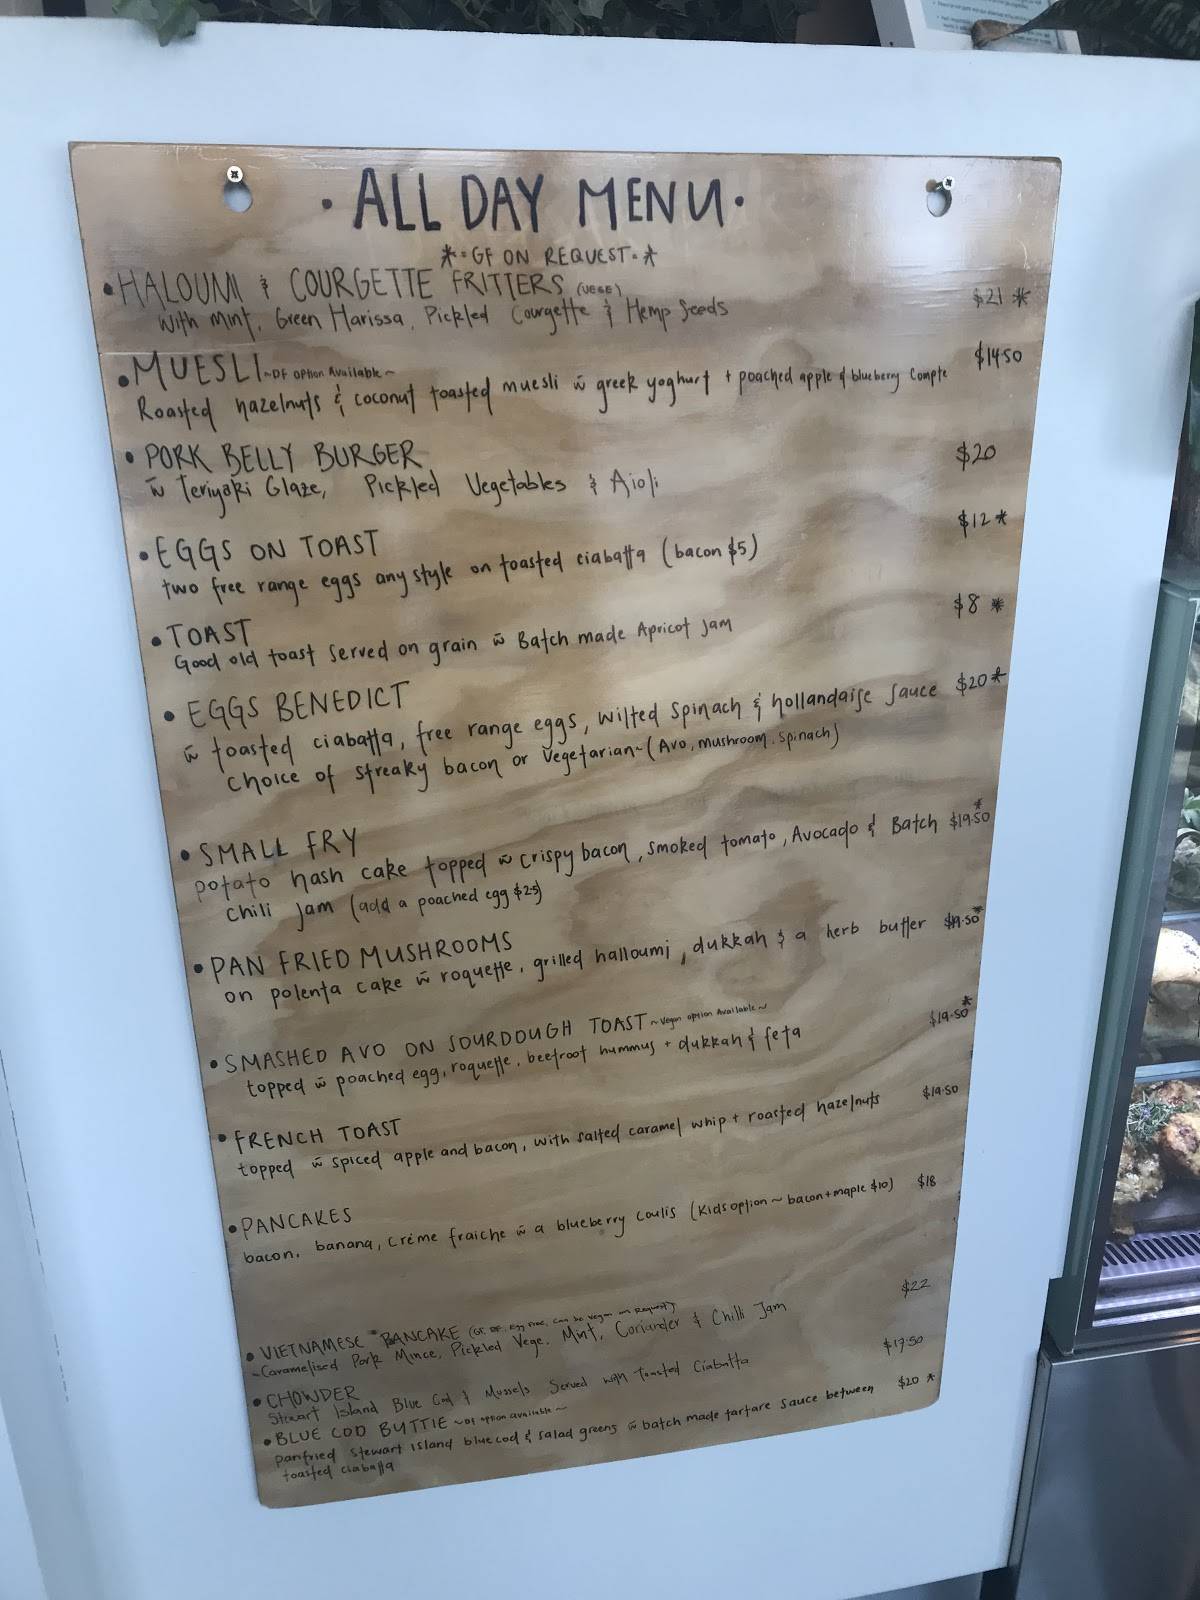 · ALL DAY MENU ·
*·GF ON REQUEST·*
• HALOUMI & COURGETTE FRITTERS (VEGE)
With Mint, Green Harissa, Pickled Courgette & Hemp Seeds $21 *
• MUESLI ~DF option Available~ $14.50
Roasted hazelnuts & coconut toasted muesli w greek yoghurt + poached apple & blueberry Compte
• PORK BELLY BURGER $20
w Teriyaki Glaze, Pickled Vegetables & Aioli
• EGGS ON TOAST $12 *
two free range eggs any style on toasted ciabatta (bacon $5)
• TOAST $8 *
Good old toast served on grain w Batch made Apricot Jam
• EGGS BENEDICT
w toasted ciabatta, free range eggs, wilted spinach & hollandaise sauce $20*
choice of streaky bacon or Vegetarian~(Avo, mushroom, spinach)
• SMALL FRY
potato hash cake topped w crispy bacon, smoked tomato, Avocado & Batch $19.50 *
chili jam (add a poached egg $2.5)
• PAN FRIED MUSHROOMS
on polenta cake w roquette, grilled halloumi, dukkah & a herb butter $19.50 *
• SMASHED AVO ON SOURDOUGH TOAST ~Vegan option Available~ $19.50 *
topped w poached egg, roquette, beetroot hummus + dukkah & feta
• FRENCH TOAST $19.50
topped w spiced apple and bacon, with salted caramel whip + roasted hazelnuts
• PANCAKES $18
bacon, banana, crème fraiche w a blueberry coulis (Kids option ~ bacon + maple $10)
• VIETNAMESE PANCAKE (GF, DF, Egg Free, Can be Vegan on Request) $22
~Caramelised Pork Mince, Pickled Vege, Mint, Coriander & Chilli Jam
• CHOWDER $17.50
Stewart Island Blue Cod & Mussels Served with Toasted Ciabatta
• BLUE COD BUTTIE ~DF option available~ $20 *
panfried Stewart island blue cod & salad greens w batch made tartare sauce between
toasted ciabatta